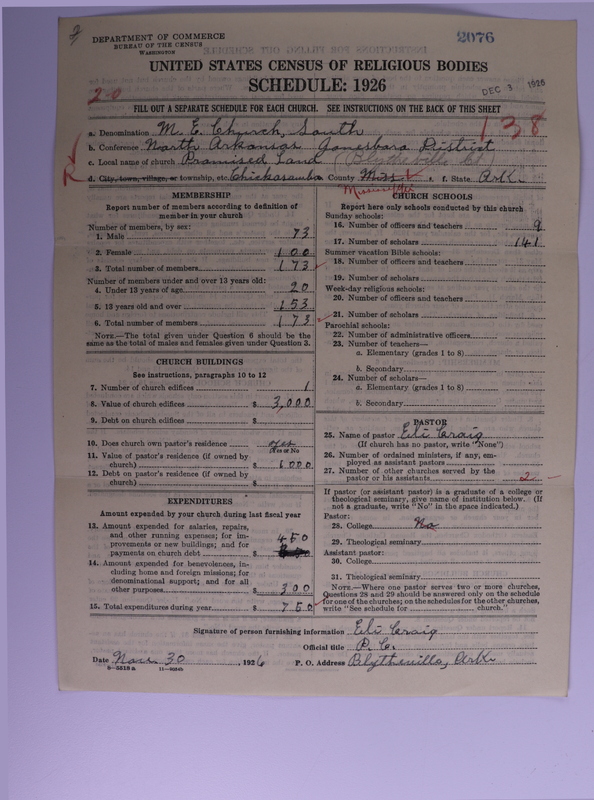 DEPARTMENT OF COMMERCE
BUREAU OF THE CENSUS
WASHINGTON
2076
UNITED STATES CENSUS OF RELIGIOUS BODIES
SCHEDULE: 1926
DEC 3 1926
2-0
FILL OUT A SEPARATE SCHEDULE FOR EACH CHURCH. SEE INSTRUCTIONS ON THE BACK OF THIS SHEET
138
a. Denomination M. E. Church, South
b. Conference North Arkansas Jonesboro District
c. Local name of church Promised Land (Blytheville Ct)
d. City, town, village, or township, etc. Chickasawba County Miss e. f. State Ark.
Mississippi
MEMBERSHIP
Report number of members according to definition of
member in your church
Number of members, by sex:
1. Male 73
2. Female 100
3. Total number of members 173
Number of members under and over 13 years old:
4. Under 13 years of age 20
5. 13 years old and over 153
6. Total number of members 173
NOTE.—The total given under Question 6 should be the
same as the total of males and females given under Question 3.
CHURCH BUILDINGS
See instructions, paragraphs 10 to 12
7. Number of church edifices 1
8. Value of church edifices $ 3,000
9. Debt on church edifices $
10. Does church own pastor's residence yes
Yes or No
11. Value of pastor's residence (if owned by
church) $ 6000
12. Debt on pastor's residence (if owned by
church) $
EXPENDITURES
Amount expended by your church during last fiscal year
13. Amount expended for salaries, repairs,
and other running expenses; for im-
provements or new buildings; and for
payments on church debt $ 450
14. Amount expended for benevolences, in-
cluding home and foreign missions; for
denominational support; and for all
other purposes $ 300
15. Total expenditures during year $ 750
CHURCH SCHOOLS
Report here only schools conducted by this church
Sunday schools:
16. Number of officers and teachers 9
17. Number of scholars 141
Summer vacation Bible schools:
18. Number of officers and teachers
19. Number of scholars
Week-day religious schools:
20. Number of officers and teachers
21. Number of scholars
Parochial schools:
22. Number of administrative officers
23. Number of teachers—
a. Elementary (grades 1 to 8)
b. Secondary
24. Number of scholars—
a. Elementary (grades 1 to 8)
b. Secondary
PASTOR
25. Name of pastor Eli Craig
(If church has no pastor, write "None")
26. Number of ordained ministers, if any, em-
ployed as assistant pastors
27. Number of other churches served by the
pastor or his assistants 2
If pastor (or assistant pastor) is a graduate of a college or
theological seminary, give name of institution below. (If
not a graduate, write "No" in the space indicated.)
Pastor:
28. College No
29. Theological seminary
Assistant pastor:
30. College
31. Theological seminary
NOTE.—Where one pastor serves two or more churches,
Questions 28 and 29 should be answered only on the schedule
for one of the churches; on the schedules for the other churches,
write "See schedule for church."
Signature of person furnishing information Eli Craig
Official title P. C.
Date Nov. 30, 1926 P. O. Address Blytheville, Ark